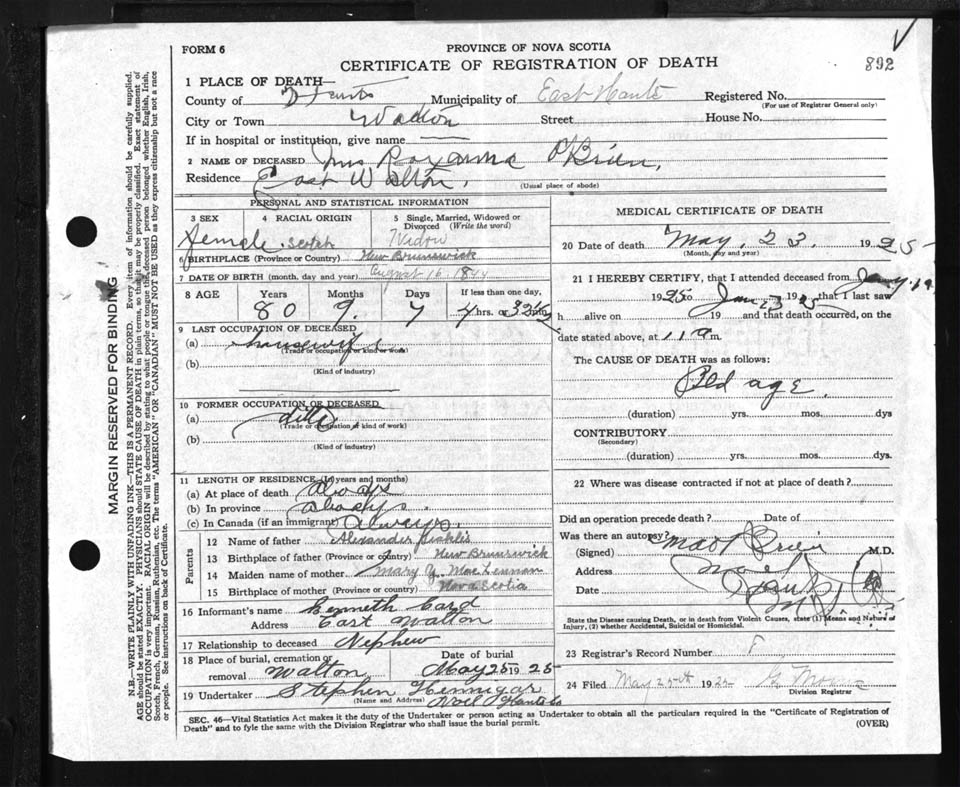 FORM 6
PROVINCE OF NOVA SCOTIA
CERTIFICATE OF REGISTRATION OF DEATH
892
1 PLACE OF DEATH—
County of Hants Municipality of East Hants Registered No.
(For use of Registrar General only)
City or Town Walton Street House No.
If in hospital or institution, give name
2 NAME OF DECEASED Mrs Roxanna O'Brien,
Residence East Walton, (Usual place of abode)
PERSONAL AND STATISTICAL INFORMATION
3 SEX 4 RACIAL ORIGIN 5 Single, Married, Widowed or Divorced (Write the word)
Female. Scotch Widow
6 BIRTHPLACE (Province or Country) New Brunswick
7 DATE OF BIRTH (month, day and year) August 16. 1844
8 AGE Years Months Days If less than one day,
80 9. 7 4 hrs. or
9 LAST OCCUPATION OF DECEASED
(a) housewife
(Trade or occupation or kind of work)
(b)
(Kind of industry)
10 FORMER OCCUPATION OF DECEASED
(a) ditto
(Trade or occupation or kind of work)
(b)
(Kind of industry)
11 LENGTH OF RESIDENCE (In years and months)
(a) At place of death always
(b) In province always.
(c) In Canada (if an immigrant) always.
Parents
12 Name of father Alexander
13 Birthplace of father (Province or country) New Brunswick
14 Maiden name of mother Mary Y. MacLennan
15 Birthplace of mother (Province or country) Nova Scotia
16 Informant's name Kenneth Card
Address East Walton
17 Relationship to deceased Nephew
18 Place of burial, cremation or removal Walton Date of burial May 25 1925
19 Undertaker Stephen Hennigar
(Name and Address) Noel Hants Co
MEDICAL CERTIFICATE OF DEATH
20 Date of death May, 23. 1925
(Month, day and year)
21 I HEREBY CERTIFY, that I attended deceased from
1925 to that I last saw
h alive on 19 and that death occurred, on
date stated above, at 11 a m.
The CAUSE OF DEATH was as follows:
Old age.
(duration) yrs. mos. dys
CONTRIBUTORY
(Secondary)
(duration) yrs. mos. dys.
22 Where was disease contracted if not at place of death?
Did an operation precede death? Date of
Was there an autopsy?
(Signed) M.D.
Address Noel
Date
State the Disease causing Death, or in death from Violent Causes, state (1) Means and Nature of Injury, (2) whether Accidental, Suicidal or Homicidal.
23 Registrar's Record Number
24 Filed May 25th 1925
Division Registrar
SEC. 46—Vital Statistics Act makes it the duty of the Undertaker or person acting as Undertaker to obtain all the particulars required in the "Certificate of Registration of
Death" and to fyle the same with the Division Registrar who shall issue the burial permit. (OVER)
MARGIN RESERVED FOR BINDING
N.B.—WRITE PLAINLY WITH UNFADING INK—THIS IS A PERMANENT RECORD. Every item of information should be carefully supplied.
AGE should be stated EXACTLY. PHYSICIANS should STATE CAUSE OF DEATH in plain terms, so that it may be properly classified. Exact statement of
OCCUPATION is very important. RACIAL ORIGIN will be described by stating to what people or tongue the deceased person belonged whether English, Irish,
Scotch, French, German, Russian, Ruthenian, etc. The terms "AMERICAN" OR "CANADIAN" MUST NOT BE USED as they express citizenship but not a race
or people. See instructions on back of Certificate.